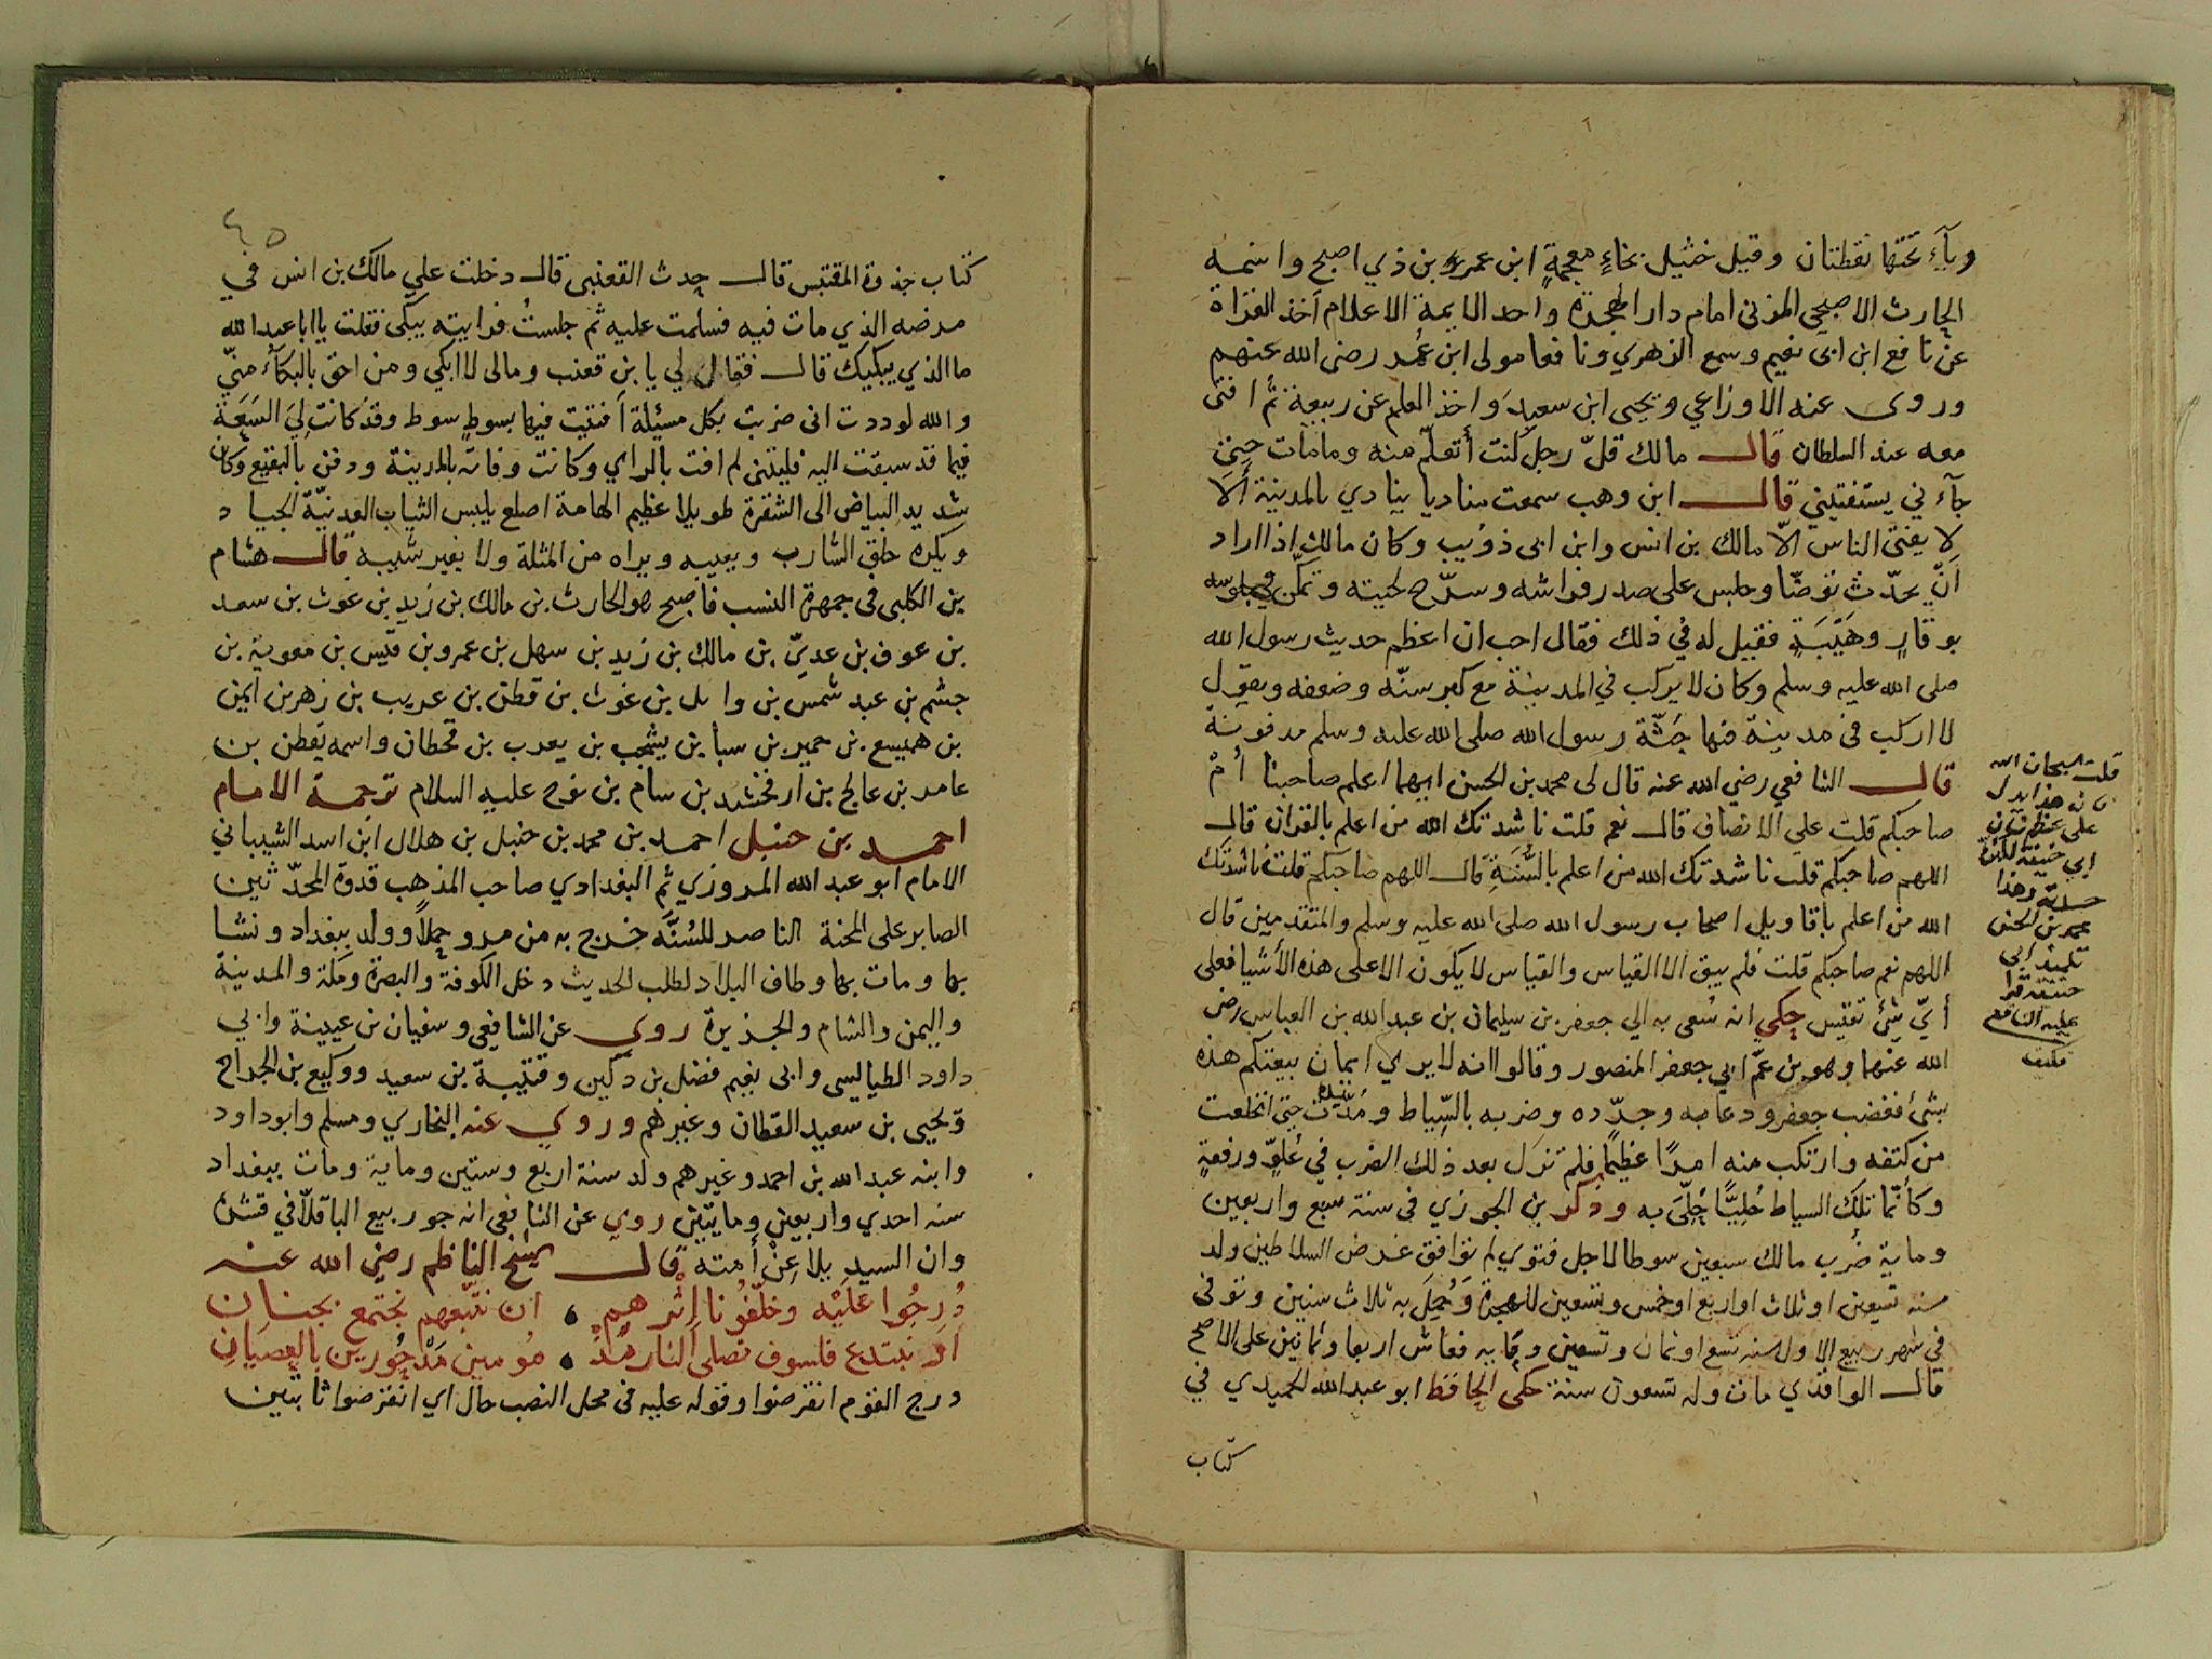 وياء تحتها نقطتان وقيل خثيل بخاءٍ معجمةٍ ابن عمرو بن ذي اصبح واسمه
الحارث الاصبحي المدني امام دار الهجرة واحد الايمة الاعلام اخذ القراة
عن نافع ابن ابي نعيم وسمع الزهري ونافعا مولى ابن عُمر رضي الله عنهم
وروى عنه الاوزاعي ويحيى ابن سعيد واخذ العلم عن ربيعة ثم افتى
معه عند السلطان قال مالك قلّ رجل كنت أتعلّم منه ومامات حتى
جآءني يستفتيني قال ابن وهب سمعت مناديا ينادي بالمدينة ألا
لا يفتي الناس الّا مالك بن انس وابن ابي ذؤيب وكان مالك اذا اراد
انّ يحدّث توضّا وجلس على صدر فراشه وسرّح لحيته وتمكّن في جلوسه
بوقارٍ وهَيْبَةٍ فقيل له في ذلك فقال احب ان اعظم حديث رسول الله
صلى الله عليه وسلم وكان لا يركب في المدينة مع كبر سنّه وضعفه ويقول
لا اركب في مدينة فيها جثّة رسول الله صلى الله عليه وسلم مدفونة
قال الشافعي رضي الله عنه قال لي محمد بن الحسن ايهما اعلم صاحبنا أمْ
صاحبكم قلت على الانصاف قال نعم قلت ناشدتك الله من اعلم بالقران قال
اللهم صاحبكم قلت ناشدتك الله من اعلم بالسُّنَةِ قال اللهم صاحبكم قلت ناشدتك
الله من اعلم باقاويل اصحاب رسول الله صلى الله عليه وسلم والمتقدمين قال
اللهم نعم صاحبكم قلت فلم يبق الا القياس والقياس لا يكون الا على هذه الأشيا فعلى
أيّ شئ تقيس حكي انه سُعى به الي جعفر بن سليمان بن عبد الله بن العباس رضي
الله عنهما وهو بن عمّ ابي جعفر المنصور وقالوا انه لا يري ايمان بيعتكم هذه
بشئ فغضب جعفر ودعا به وجرّده وضربه بالسِّياط ومُدّت يده حتى انخلعت
من كتفه وارتكب منه امرًا عظيمًا فلم تزل بعد ذلك الضرب في عُلوّ ورفعةٍ
وكأنّما تلك السياط حُليًّا حُلّيَ به وذكر بن الجوزي في سنة سبع واربعين
وماية ضُرب مالك سبعين سوطا لاجل فتوي لم توافق غرض السلاطين ولد
سنه تسعين او ثلاث او اربع او خمس وتسعين للهجرة وَحُمِلَ به ثلاث سنين وتوفي
في شهر ربيع الاول سنه تسع او ثمان وتسعين وماية فعاش اربعا وثمانين على الاصح
قال الواقدي مات وله تسعون سنة حكى الحافظ ابو عبد الله الحميدي في
كتاب
قلت سبحان الله
هذا يدل
على عظم شان
ابي حنيفة
وهذا
محمد بن الحسن
تلميذ ابي
حنيفة
عليه الشافعي
كتاب جذوة المقتبس قال حدث القعنبى قال دخلت علي مالك بن انس في
مرضه الذي مات فيه فسلمت عليه ثم جلستُ فرايته يبكى فقلت يا ابا عبد الله
ما الذي يبكيك قال فقال لي يا بن قعنب ومالى لا ابكي ومن احق بالبكآء منّي
والله لوددت انى ضربت بكل مسئلة أفتيت فيها بسوط سوط وقد كانت لِيَ السَعَة
فيما قد سبقت اليه فليتني لم افت بالراي وكانت وفاته بالمدينة ودفن بالبقيع وكان
شديد البياض الى الشقرة طويلا عظيم الهامة اصلع يلبس الثياب العدنيّة الجياد
ويكره حلق الشارب ويعيبه ويراه من المثلة ولا يغير شيبه قال هشام
بن الكلبى في جمهرة النسب فاصبح هو الحارث بن مالك بن زيد بن غوث بن سعد
بن عوف بن عديّ بن مالك بن زيد بن سهل بن عمرو بن قيس بن معوية بن
جشم بن عبد شمس بن وايل بن غوث بن قطن بن عريب بن زهر بن ايمن
بن هميسع بن حمير بن سبأ بن يشجب بن يعرب بن قحطان واسمه يقطن بن
عامر بن عالج بن ارفخشد بن سام بن نوح عليه السلام ترجمة الامام
احمد بن حنبل احمد بن محمد بن حنبل بن هلال ابن اسد الشيباني
الامام ابو عبد الله المروزي ثم البغدادي صاحب المذهب قدوة المحدّثين
الصابر على المحنة الناصر للسُنَّه خرج به من مرو حملًا وولد ببغداد ونشا
بها ومات بها وطاف البلاد لطلب الحديث دخل الكوفة والبصرة ومكة والمدينة
واليمن والشام والجزيرة روي عن الشافعي وسفيان بن عيينة وابي
داود الطيالسي وابى نعيم فضل بن دكين وقتيبة بن سعيد ووكيع بن الجراح
ويحيى بن سعيد القطان وغيرهم وروي عنه البخاري ومسلم وابو داود
وابنه عبد الله بن احمد وغيرهم ولد سنة اربع وستين وماية ومات ببغداد
سنه احدي واربعين ومايتين روي عن الشافعي انه جو ربيع الباقلّا في قشرٍ
وان السيد بلا عِنْ أمته قال الشيخ الناظم رضي الله عنه
دُرِجُوا عَلَيْه وخلّفونا اِثْرهم ۰ ان نتّبعهم نجتمع بجنان
او نبتدع فلسوف نصلى النار مُذْ ۰ مُومين مَدْحُورين بالعصيان
درج القوم انقرضوا وقوله عليه في محل النصب حال اي انقرضوا ثابتين